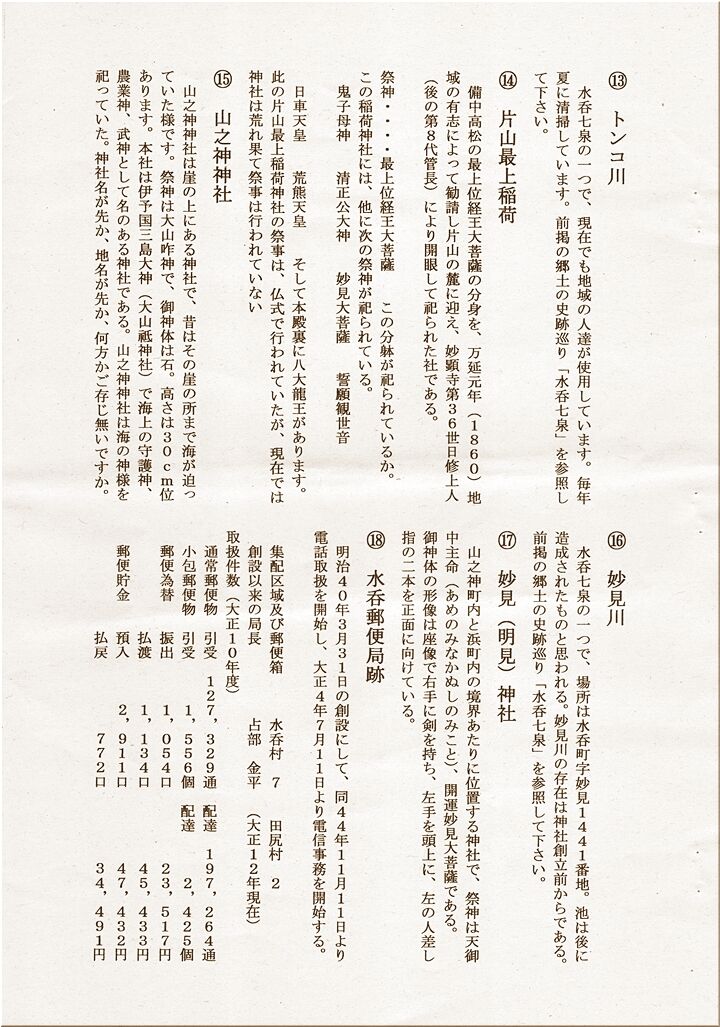 ⑬　トンコ川
水呑七泉の一つで、現在でも地域の人達が使用しています。毎年
夏に清掃しています。前掲の郷土の史跡巡り「水呑七泉」を参照し
て下さい。
⑭　片山最上稲荷
備中高松の最上位経王大菩薩の分身を、万延元年（１８６０）地
域の有志によって勧請し片山の麓に迎え、妙顕寺第３６世日修上人
（後の第８代管長）により開眼して祀られた社である。
祭神・・・・最上位経王大菩薩　　この分躰が祀られているか。
この稲荷神社には、他に次の祭神が祀られている。
鬼子母神　　清正公大神　　妙見大菩薩　　誓願観世音
日車天皇　　荒熊天皇　　そして本殿裏に八大龍王があります。
此の片山最上稲荷神社の祭事は、仏式で行われていたが、現在では
神社は荒れ果て祭事は行われていない
⑮　山之神神社
山之神神社は崖の上にある神社で、昔はその崖の所まで海が迫っ
ていた様です。祭神は大山咋神で、御神体は石。高さは３０ｃｍ位
あります。本社は伊予国三島大神（大山祗神社）で海上の守護神、
農業神、武神として名のある神社である。山之神神社は海の神様を
祀っていた。神社名が先か、地名が先か、何方かご存じ無いですか。
⑯　妙見川
水呑七泉の一つで、場所は水呑町字妙見１４４１番地。池は後に
造成されたものと思われる。妙見川の存在は神社創立前からである。
前掲の郷土の史跡巡り「水呑七泉」を参照して下さい。
⑰　妙見（明見）神社
山之神町内と浜町内の境界あたりに位置する神社で、祭神は天御
中主命（あめのみなかぬしのみこと）、開運妙見大菩薩である。
御神体の形像は座像で右手に剣を持ち、左手を頭上に、左の人差し
指の二本を正面に向けている。
⑱　水呑郵便局跡
明治４０年３月３１日の創設にして、同４４年１１月１１日より
電話取扱を開始し、大正４年７月１１日より電信事務を開始する。
集配区域及び郵便箱　　水呑村　７　　田尻村　２
創設以来の局長　　占部　金平　（大正１２年現在）
取扱件数（大正１０年度）
通常郵便物　引受　１２７，３２９通　配達　１９７，２６４通
小包郵便物　引受　１，５５６個　配達　２，４２５個
郵便為替　振出　１，０５４口　２３，５１７円
払渡　１，１３４口　４５，４３３円
郵便貯金　預入　２，９１１口　４７，４３２円
払戻　７７２口　３４，４９１円